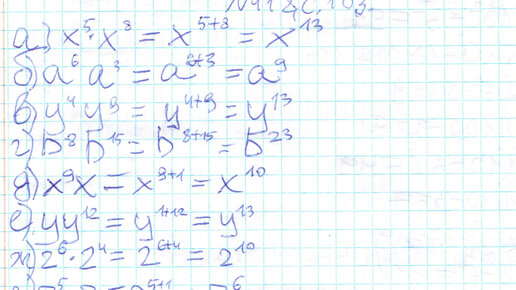 а) x⁵·x⁸ = x⁵⁺⁸ = x¹³
б) a⁶ a³ = a⁶⁺³ = a⁹
в) y⁴ y⁹ = y⁴⁺⁹ = y¹³
г) b⁸ b¹⁵ = b⁸⁺¹⁵ = b²³
д) x⁹ x = x⁹⁺¹ = x¹⁰
е) y y¹² = y¹⁺¹² = y¹³
ж) 2⁶·2⁴ = 2⁶⁺⁴ = 2¹⁰